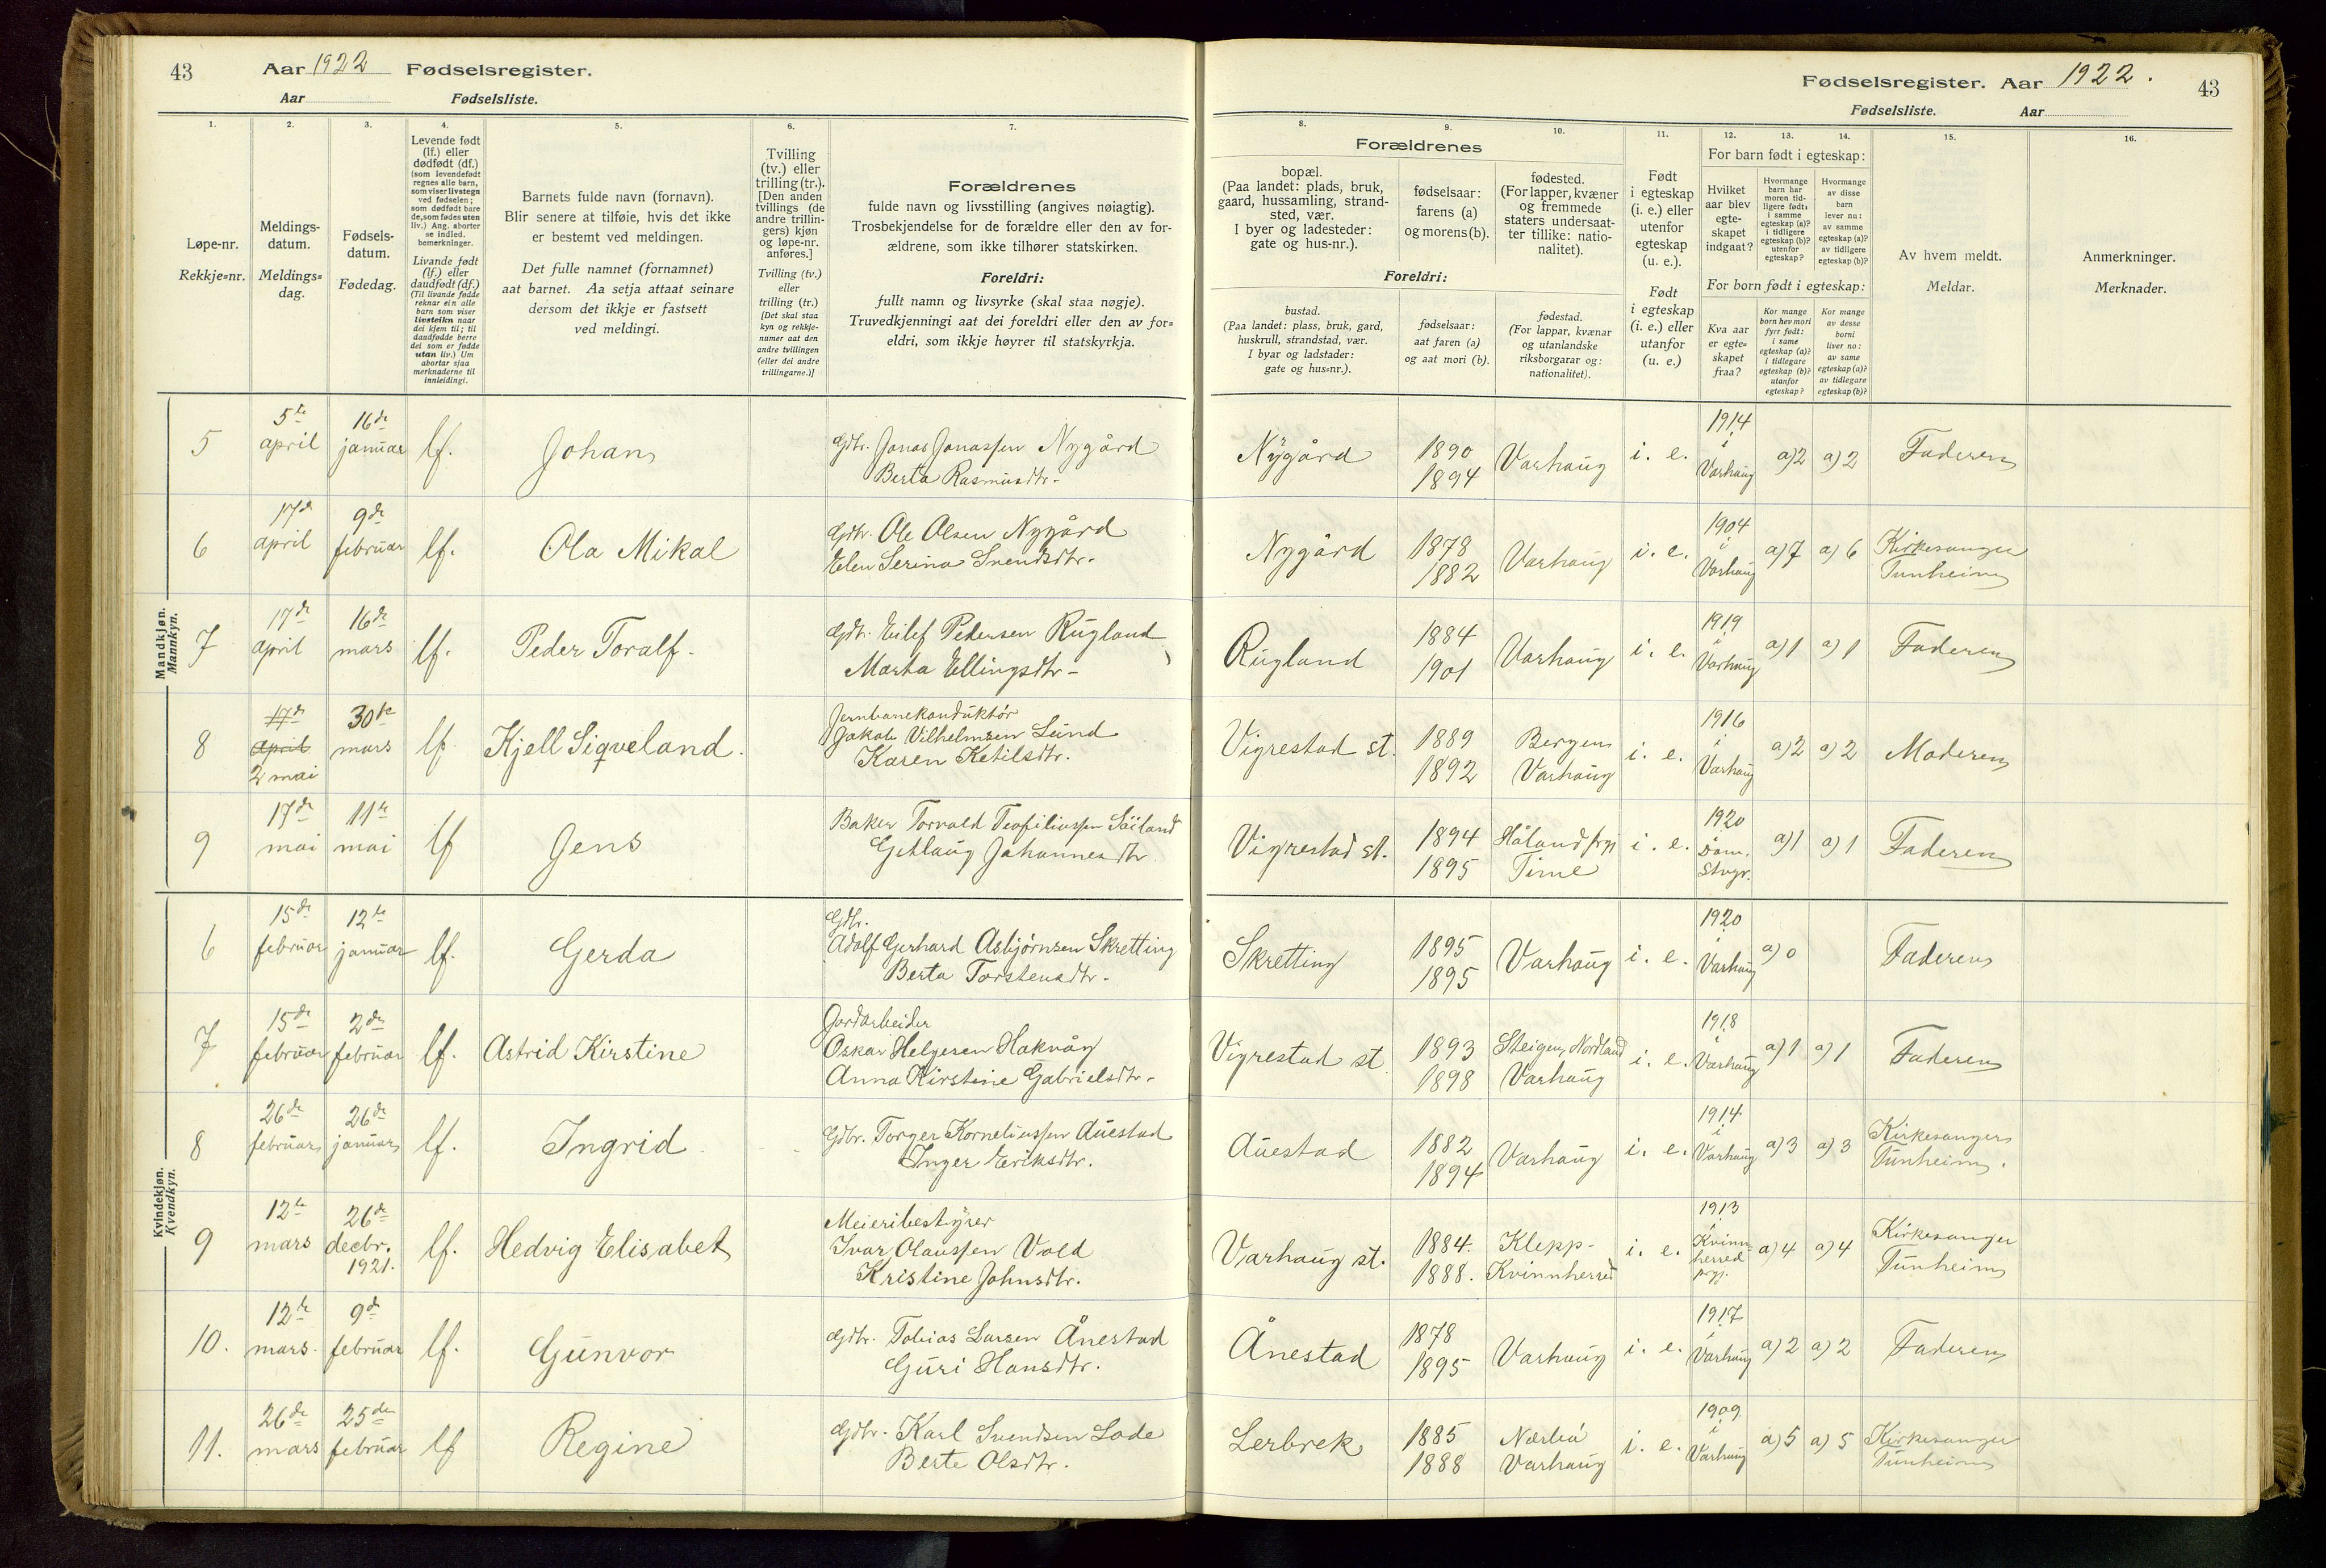 43 Aar 1922 Fødselsregister.
Aar Fødselsliste.
Fødselsregister. Aar 1922. 43
Fødselsliste. Aar
1. 2. 3. 4. 5. 6. 7. 8. 9. 10. 11. 12. 13. 14. 15. 16.
Løpe-nr.
Rekkje=nr.
Meldings-
datum.
Meldings=
dag.
Fødsels-
datum.
Fødedag.
Levende født
(lf.) eller
dødfødt (df.)
(som levendefødt
regnes alle barn,
som viser livstegn
ved fødselen;
som dødfødt bare
de, som fødes uten
liv.) Ang. aborter
se indled.
bemerkninger.
Livande født
(lf.) eller
daudfødt (df.)
(Til livande fødde
reknar ein alle
barn som viser
livsteikn naar
dei kjem til; til
daudfødde berre
dei som er fødde
utan liv.) Um
abortar sjaa
merknaderne til
innleidingi.
Barnets fulde navn (fornavn).
Blir senere at tilføie, hvis det ikke
er bestemt ved meldingen.
Det fulle namnet (fornamnet)
aat barnet. Aa setja attaat seinare
dersom det ikkje er fastsett
ved meldingi.
Tvilling
(tv.) eller
trilling (tr.).
[Den anden
tvillings (de
andre trillin-
gers) kjøn
og løpe-nr.
anføres.]
Tvilling (tv.)
eller
trilling (tr.)
[Det skal staa
kyn og rekkje-
numer aat den
andre tvillingen
(eller dei andre
trillingarne.)]
Forældrenes
fulde navn og livsstilling (angives nøiagtig).
Trosbekjendelse for de forældre eller den av for-
ældrene, som ikke tilhører statskirken.
Foreldri:
fullt namn og livsyrke (skal staa nøgje).
Truvedkjenningi aat dei foreldri eller den av for=
eldri, som ikkje høyrer til statskyrkja.
Forældrenes
bopæl.
(Paa landet: plads, bruk,
gaard, hussamling, strand-
sted, vær.
I byer og ladesteder:
gate og hus-nr.).
fødselsaar:
farens (a)
og morens (b).
fødested.
(For lapper, kvæner
og fremmede
staters undersaat-
ter tillike: natio-
nalitet).
Foreldri:
bustad.
(Paa landet: plass, bruk, gard,
huskrull, strandstad, vær.
I byar og ladstader:
gate og hus=nr.).
fødselsaar:
aat faren (a)
og aat mori (b).
fødestad.
(For lappar, kvænar
og utanlandske
riksborgarar og:
nationalitet).
Født
i egteskap
(i. e.) eller
utenfor
egteskap
(u. e.).
Født
i egteskap
(i. e.) eller
utanfor
(u. e.)
For barn født i egteskap:
Hvilket
aar blev
egte-
skapet
indgaat?
Hvormange
barn har
moren tid-
ligere født:
i samme
egteskap (a)?
i tidligere
egteskap (b)?
utenfor
egteskap?
Hvormange
av disse
barn
lever nu:
av samme
egteskap (a)?
av tidligere
egteskap (b)?
For born født i egteskap:
Kva aar
er egte=
skapet
fraa?
Kor mange
born hev mori
fyrr født:
i same
egteskap (a)?
i tidlegare
egteskap (b)?
utanfor
egteskap?
Kor mange
av desse
borni
liver no:
av same
egteskap (a)?
av tidlegare
egteskap (b)?
Av hvem meldt.
Meldar.
Anmerkninger.
Merknader.
Mandkjøn.
Mannkyn.
5 5te april 16de januar lf. Johan
Gdbr. Jonas Jonassen Nygård
Berta Rasmusdtr.
Nygård 1890 1894 Varhaug i. e. 1914 i Varhaug a) 2 a) 2 Faderen
6 17de april 9de februar lf. Ola Mikal
Gdbr. Ole Olsen Nygård
Elen Serina Svendsdtr.
Nygård 1878 1882 Varhaug i. e. 1904 i Varhaug a) 7 a) 6 Kirkesanger
Tunheim
7 17de april 16de mars lf. Peder Toralf.
Gdbr. Eilef Pedersen Rugland
Marta Ellingsdtr.
Rugland 1884 1901 Varhaug i. e. 1919 i Varhaug a) 1 a) 1 Faderen
8 17de april 2 mai 30te mars lf Kjell Siqveland.
Jernbanekonduktør
Jakob Vilhelmsen Lund
Karen Ketilsdtr.
Vigrestad st. 1889 1892 Bergen Varhaug i. e. 1916 i Varhaug a) 2 a) 2 Moderen
9 17de mai 11te mai lf Jens
Baker Torvald Teofiliussen
Johannesdtr
Vigrestad st. 1894 1895 Håland prgj Time i. e. 1920 i Dom. Stvgr. a) 1 a) 1 Faderen
Kvindekjøn.
Kvendkyn.
6 15de februar 12te januar lf. Gerda
Gdbr.
Adolf Gerhard Asbjørnsen Skretting
Berta Torstensdtr.
Skretting 1895 1895 Varhaug i. e. 1920 i Varhaug a) 0 Faderen
7 15de februar 2den februar lf. Astrid Kirstine
Jordarbeider
Oskar Helgesen Hakvåg
Anna Kirstine Gabrielsdtr.
Vigrestad st. 1893 1898 Steigen, Nordland Varhaug i. e. 1918 i Varhaug a) 1 a) 1 Faderen
8 26de februar 26de januar lf. Ingrid
Gdbr. Torger Korneliussen Auestad
Inger Eriksdtr.
Auestad 1882 1894 Varhaug i. e. 1914 i Varhaug a) 3 a) 3 Kirkesanger
Tunheim.
9 12te mars 26de decbr. 1921. lf. Hedvig Elisabet
Meieribestyrer
Ivar Olaussen Vold
Kristine Johnsdtr.
Varhaug st. 1884. 1888. Klepp- Kvinnherred i. e. 1913 i Kvinnherred prgj. a) 4 a) 4 Kirkesanger
Tunheim
10. 12te mars. 9de februar lf. Gunvor
Gdbr. Tobias Larsen Ånestad
Guri Hansdtr.
Ånestad 1878 1895 Varhaug i. e. 1917 i Varhaug a) 2 a) 2 Faderen
11. 26de mars 25de februar lf Regine
Gdbr. Karl Svendsen Lode
Berte Olsdtr.
Lerbrek 1885 1888 Nærbø Varhaug i. e. 1909 i Varhaug a) 5 a) 5 Kirkesanger
Tunheim